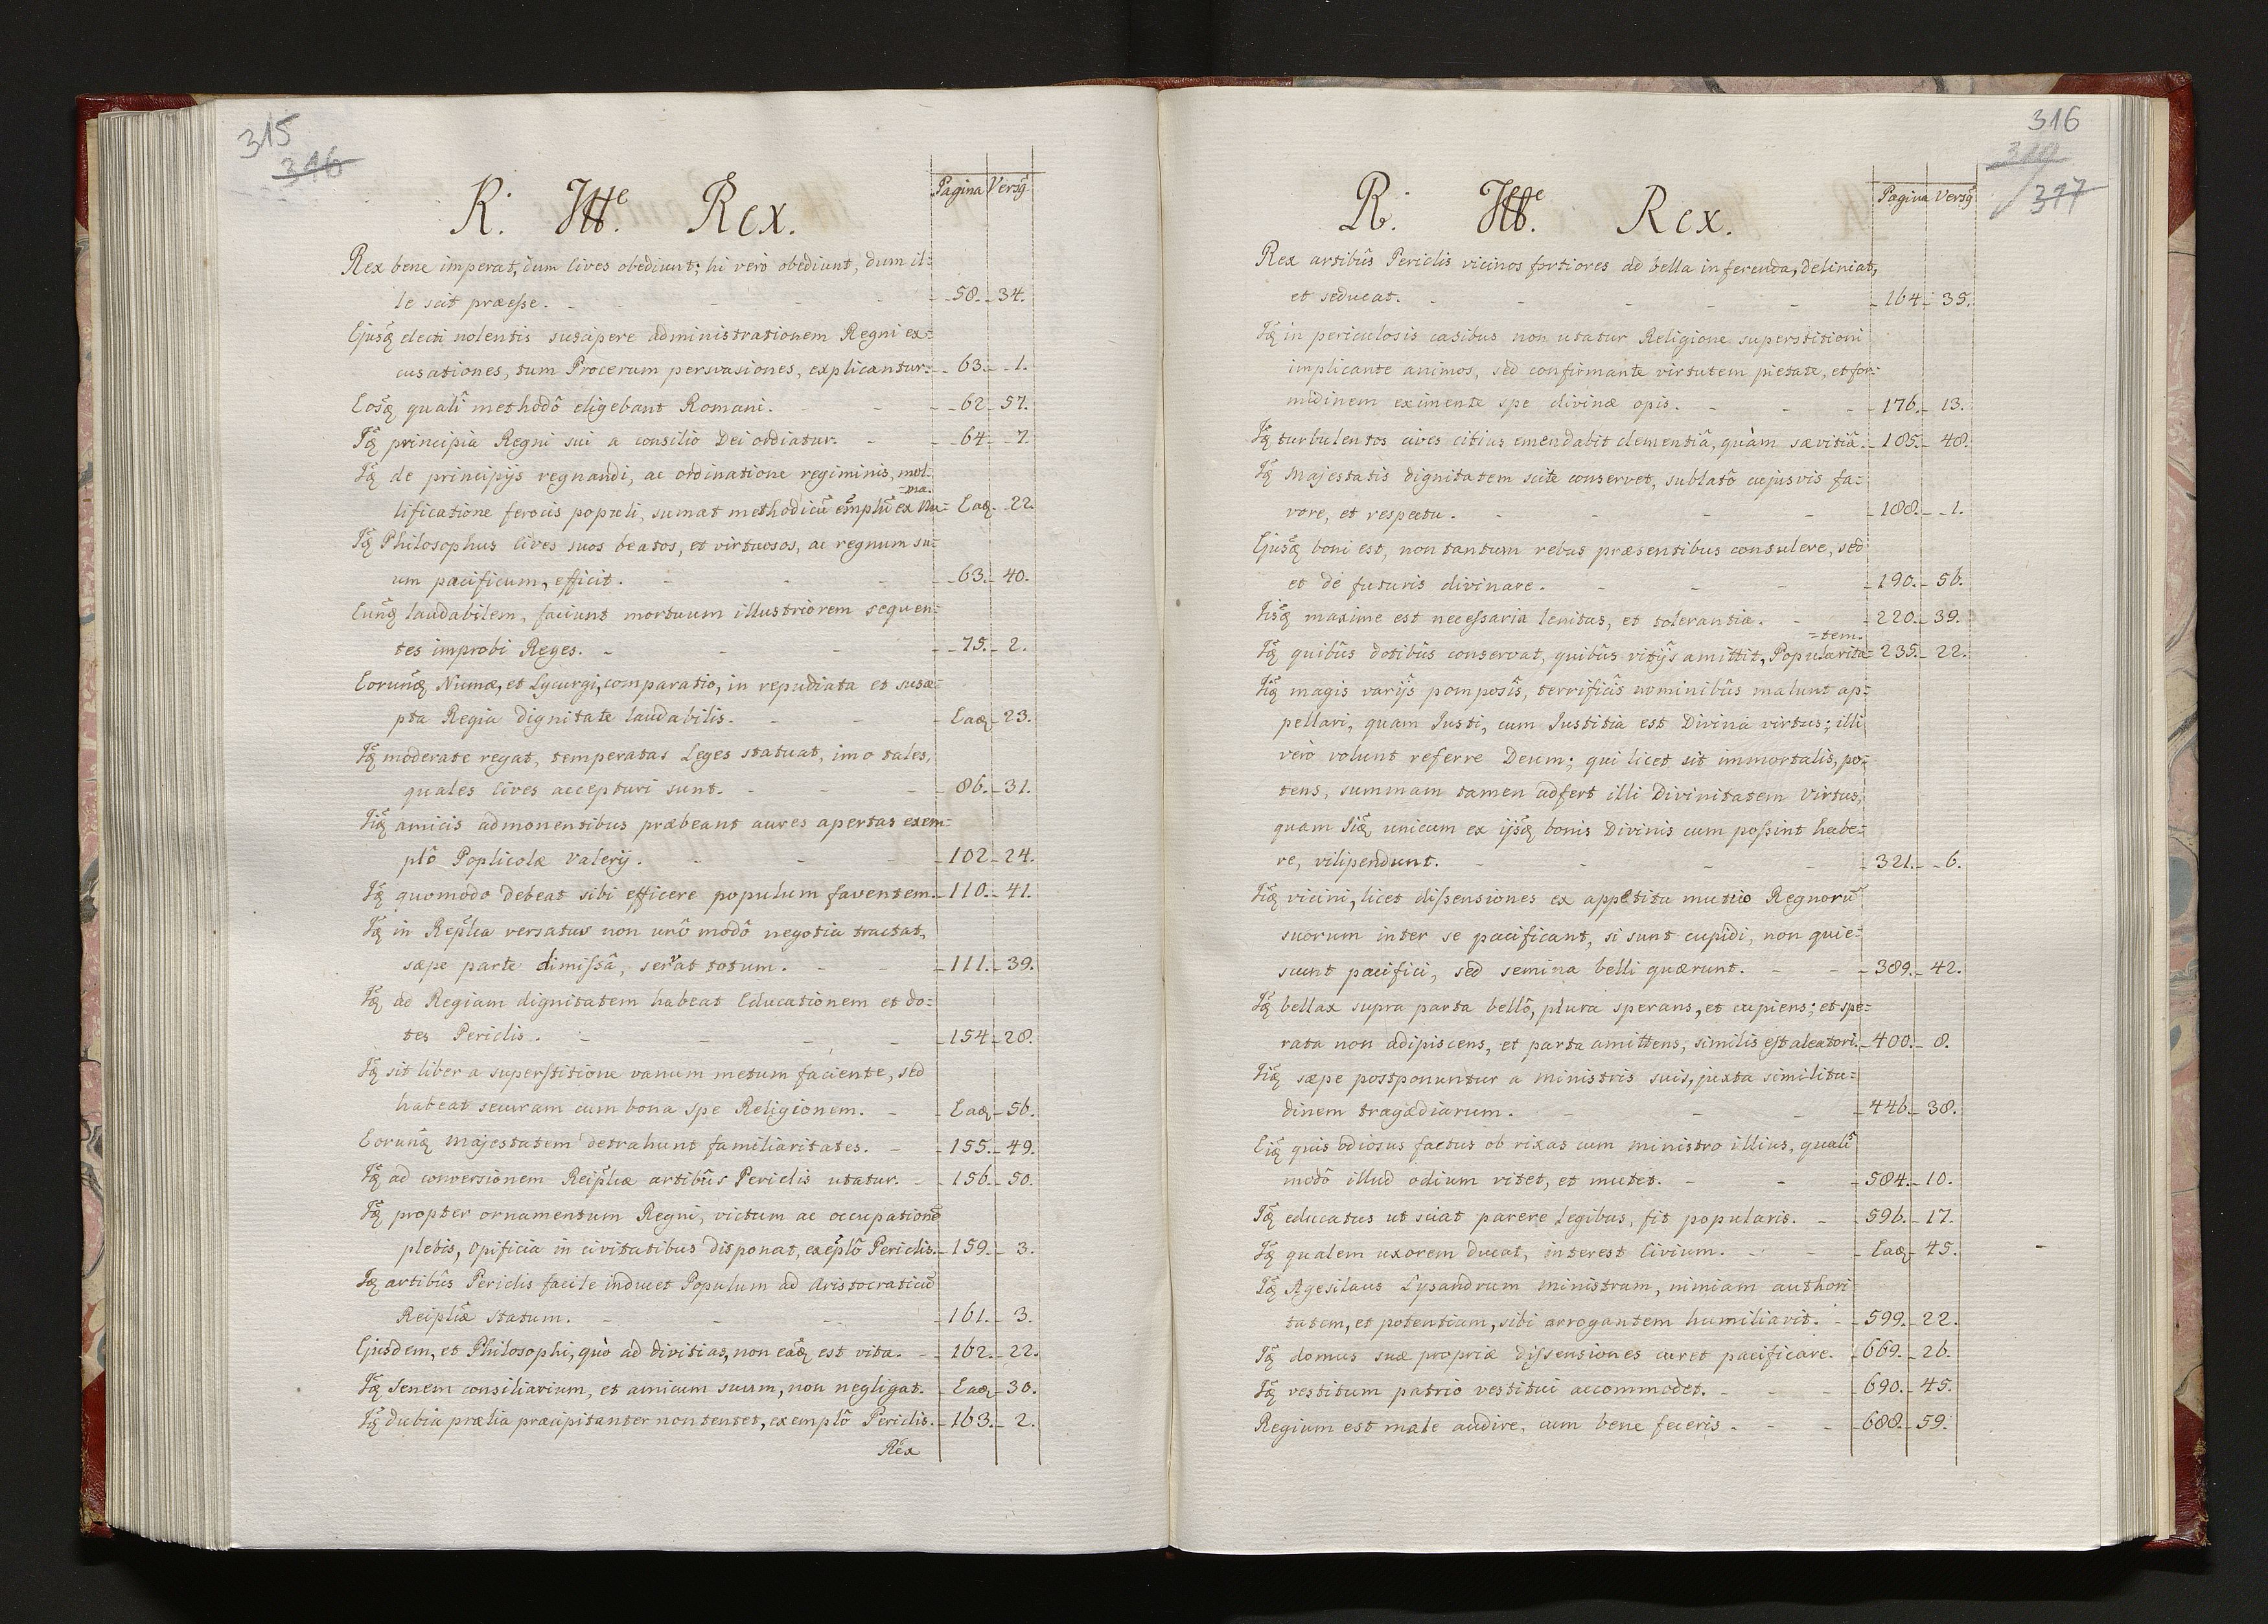 315
316
R. Itt͂e. Rex.
Pagina Versq̃
Rex bene imperat, dum Cives obediunt; hi verò obediunt, dum il=
le scit præesse. - 58. - 34.
Ejusq̃ electi nolentis suscipere administrationem Regni ex=
cusationes, tum Procerum persvasiones, explicantur. - 63. - 1.
Eosq̃ quali methodô eligebant Romani. - 62 - 57.
Iq̃ principia Regni sui a consilio Dei ordiatur. - 64 - 7.
Iq̃ de principijs regnandi, ac ordinatione regiminis, mol=
=ma.
lificatione ferocis populi, sumat methodicũ exemplũ ex Nu= Eaq̃ - 22.
Iq̃ Philosophus Cives suos beatos, et virtuosos, ac regnum su=
um pacificum, efficit. - 63. - 40.
Eunq̃ laudabilem, faciunt mortuum illustriorem sequen=
tes improbi Reges. - 75. - 2.
Eorunq̃ Numæ, et Lycurgi, comparatio, in repudiata et susce=
pta Regia dignitate laudabilis. - Eaq̃ - 23.
Iq̃ moderate regat, temperatas Leges statuat, imo tales,
quales Cives accepturi sunt. - 86. - 31.
Iiq̃ amicis admonentibus præbeant aures apertas exem=
plô Poplicolæ Valerij. - 102 - 24.
Iq̃ quomodo debeat sibi efficere populum faventem. - 110. - 41.
Iq̃ in Rep̃lca versatus non unô modô negotia tractat,
sæpe parte dimissâ, servat totum. - 111. - 39.
Iq̃ ad Regiam dignitatem habeat Educationem et do=
tes Periclis. - 154 - 28.
Iq̃ sit liber a superstitione vanum metum faciente, sed
habeat securam cum bona spe Religionem. - Eaq̃ - 56.
Eorunq̃ Majestatem detrahunt familiaritates. - 155. - 49.
Iq̃ ad conversionem Reip̃licæ artibûs Periclis utatur. - 156. - 50.
Iq̃ propter ornamentum Regni, victum ac occupationẽ
plebis, opificia in civitatibus disponat, exẽplô Periclis. - 159. - 3.
Iq̃ artibûs Periclis facile inducet Populum ad Aristocraticũ
Reip̃licæ statum. - 161. - 3.
Ejusdem, et Philosophi, quò ad divitias, non eâq̃ est vita. - 162. - 22.
Iq̃ Senem consiliarium, et amicum suum, non negligat. - Eaq̃ - 30.
Iq̃ dubia prælia præcipitanter non tentet, exemplô Periclis. - 163. - 2.
Rex
316
317
R. Itt͂e. Rex.
Pagina Versq̃
Rex artibûs Periclis vicinos fortiores ad bella inferenda, deliniat,
et seducat. - 164 - 35.
Iq̃ in periculosis casibus non utatur Religione superstitioni
implicante animos, sed confirmante virtutem pietate, et for=
midinem eximente spe divinæ opis. - 176. - 13.
Iq̃ turbulentos cives citius emendabit clementiâ, quàm sævitiâ. - 185. - 48.
Iq̃ Majestatis dignitatem scite conservet, sublatô cujusvis fa=
vore, et respectu. - 188. - 1.
Ejusq̃ boni est, non tantum rebus præsentibus consulere, sed
et de futuris divinare. - 190. - 56.
Iisq̃ maxime est necessaria lenitas, et tolerantia. - 220. - 39.
=tem.
Iq̃ quibûs dotibûs conservat, quibûs vitijs amittit, Popularita= 235. - 22.
Iiq̃ magis varijs pomposis, terrificis nominibûs malunt ap=
pellari, quam Justi, cum Justitia est Divina virtus; illi
verò volunt referre Deum; qui licet sit immortalis, po=
tens, summam tamen adfert illi Divinitatem virtus,
quam Iiq̃ unicum ex ijsq̃ bonis Divinis cum possint habe=
re, vilipendunt. - 321. - 6.
Iiq̃ vicini, licet dissensiones ex appetitu mutuo Regnorũ
suorum inter se pacificant, si sunt cupidi, non quie=
scunt pacifici, sed semina belli quærunt. - 389. - 42.
Iq̃ bellax supra parta bellô, plura sperans, et cupiens; et spe=
rata non adipiscens, et parta amittens, similis est aleatori. - 400. - 8.
Iiq̃ sæpe postponuntur a ministris suis, juxta similitu=
dinem tragædiarum. - 446. - 38.
Eiq̃ quis odiosus factus ob rixas cum ministro illius, quali
modô illud odium vitet, et mutet. - 584. - 10.
Iq̃ educatus ut sciat parere Legibus, fit popularis. - 596. - 17.
Iq̃ qualem uxorem ducat, interest Civium. - Eaq̃ - 45.
Iq̃ Agesilaus Lysandrum ministrum, nimiam authori=
tatem, et potentiam, sibi arrogantem humiliavit. - 599. - 22.
Iq̃ domus suæ propriæ dissensiones curet pacificare. - 669. - 26.
Iq̃ vestitum patrio vestitui accommodet. - 690. - 45.
Regium est male audire, cum bene feceris - 688. - 59.